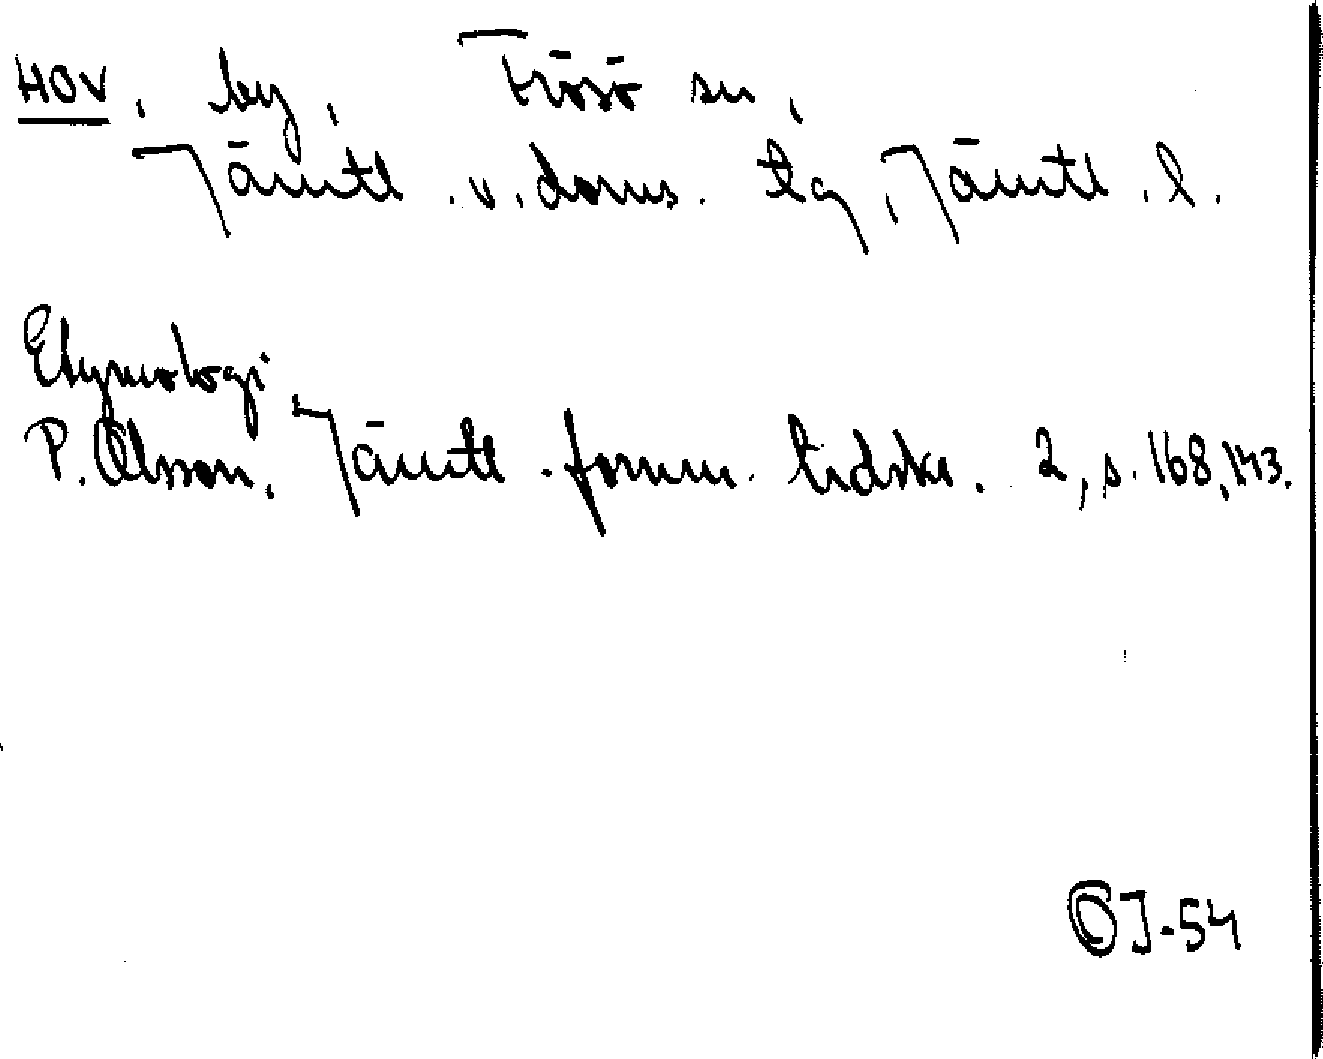 HOV, by, Frösö sn,
Jämtl. v. doms. tg, Jämtl. l.
Etymologi
P. Olsson, Jämtl. fornm. tidskr. 2, s. 168, 173.
OJ-54